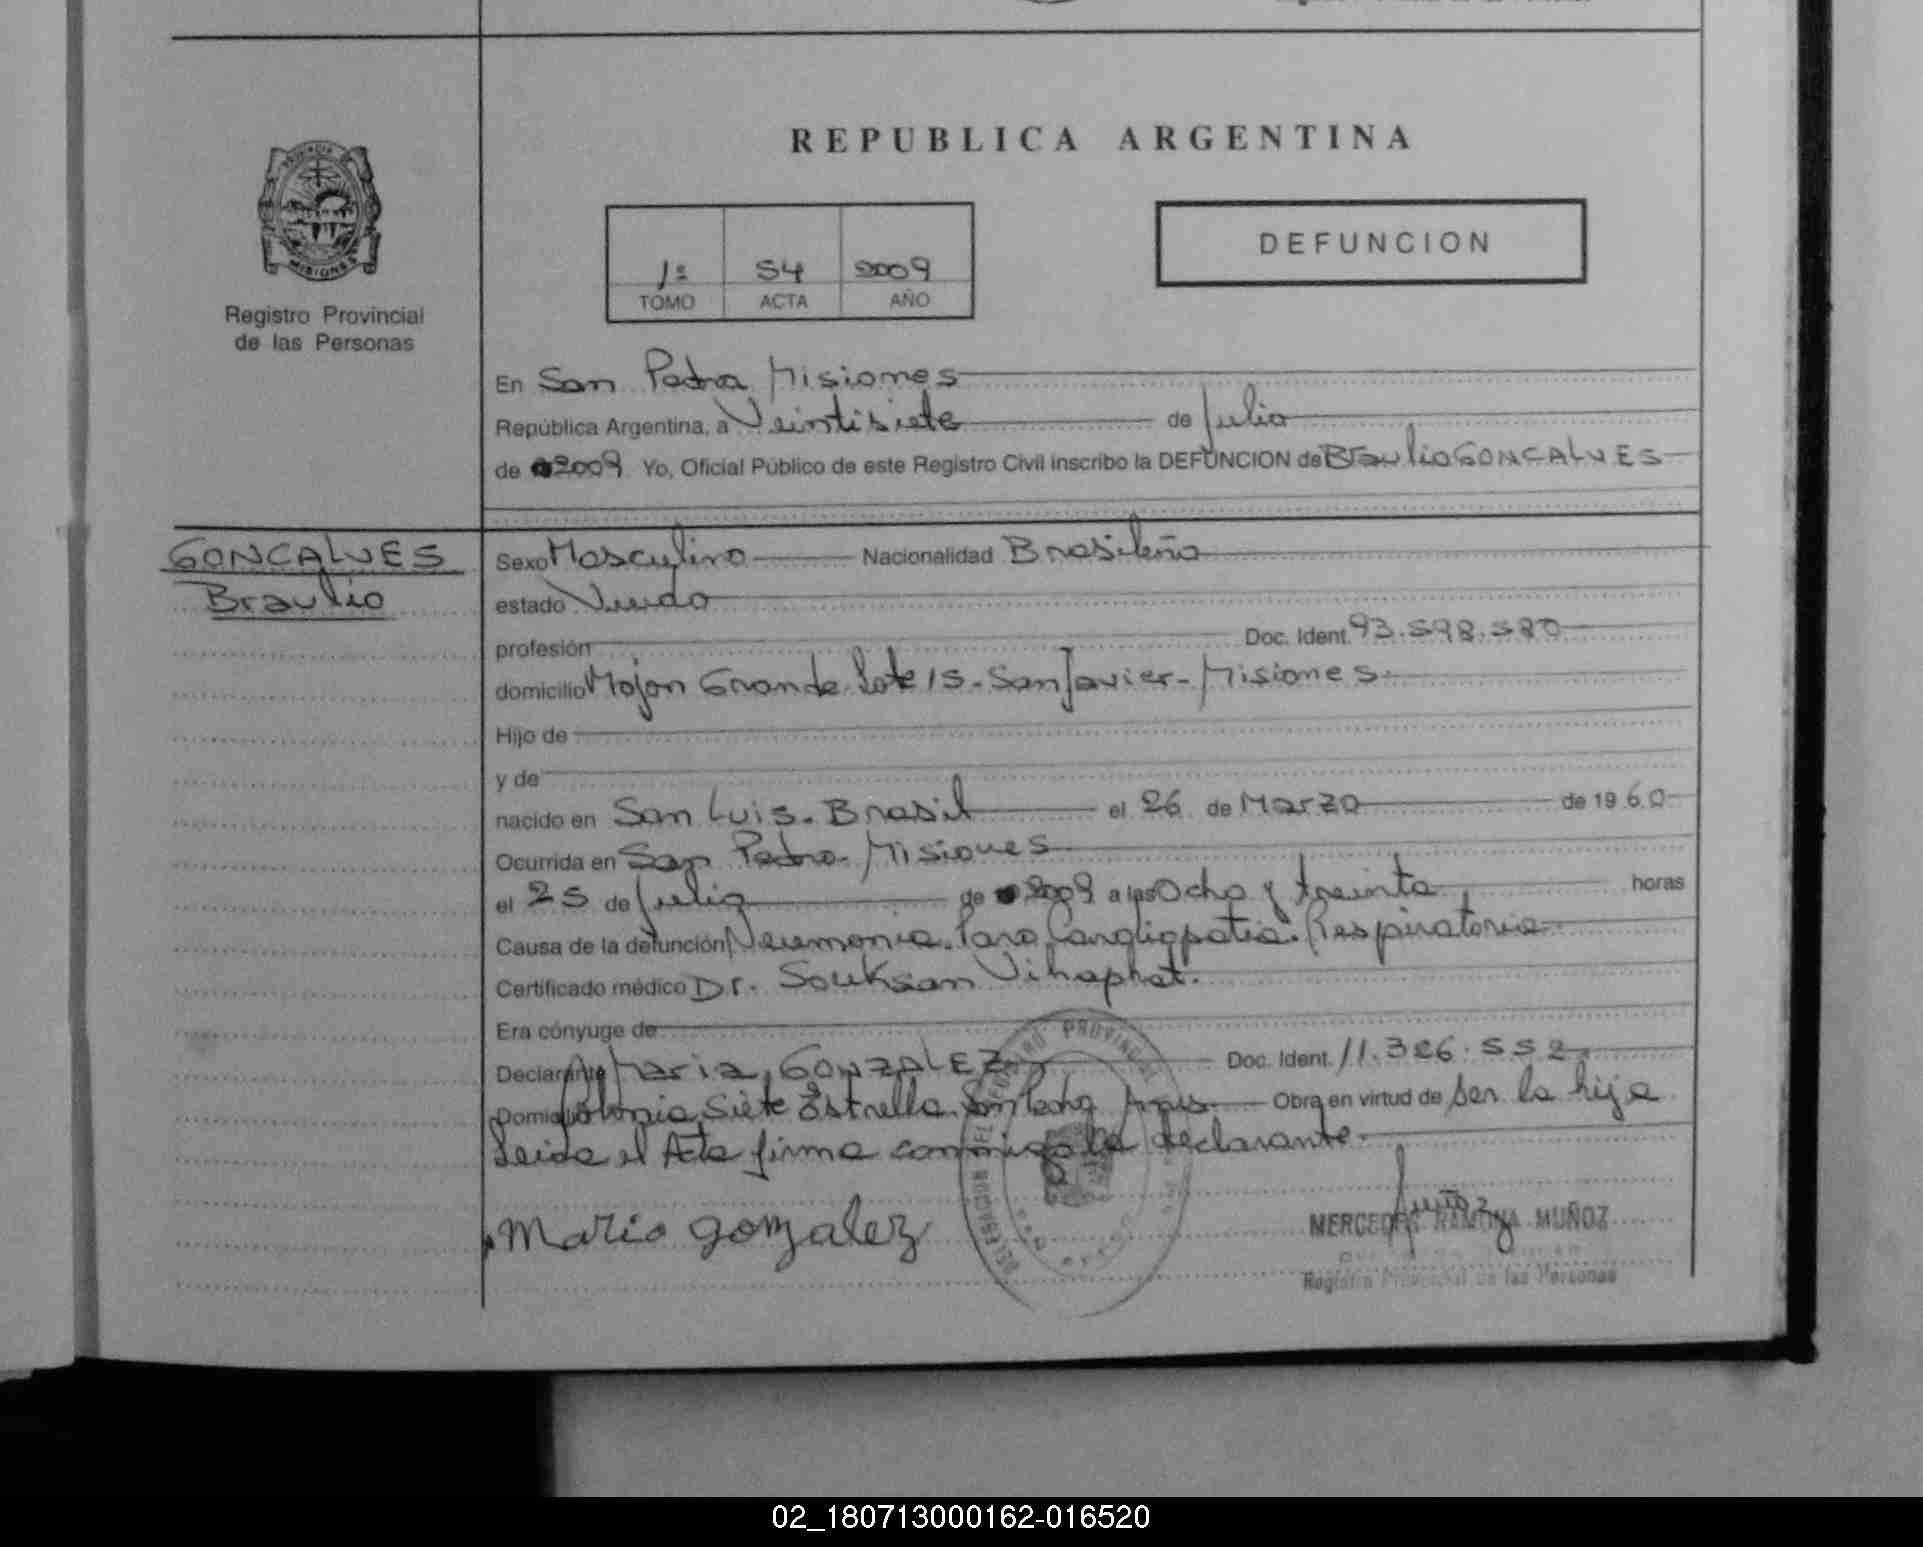 REPUBLICA ARGENTINA
MISIONES
Registro Provincial
de las Personas
1º 54 2009
TOMO ACTA AÑO
DEFUNCION
En San Pedro Misiones
República Argentina, a Veintisiete de Julio
de 2009 Yo, Oficial Público de este Registro Civil inscribo la DEFUNCION de Braulio GONCALVES
GONCALVES
Braulio
Sexo Masculino Nacionalidad Brasileño
estado Viudo
profesión Doc. Ident. 93.598.580
domicilio Mojon Grande Lote 15 - San Javier - Misiones
Hijo de
y de
nacido en San Luis. Brasil el 26 de Marzo de 1960
Ocurrida en San Pedro. Misiones
el 25 de Julio de 2009 a las Ocho y treinta horas
Causa de la defunción Neumonia. Paro Respiratorio
Certificado médico Dr. Souksan Vihaphat.
Era cónyuge de
Declarante Maria GONZALEZ Doc. Ident. 11.326.552
Domicilio Colonia Siete Estrella San Pedro Mnes. Obra en virtud de Ser la hija
Leida el Acta firma conmigo la declarante.
Maria gonzalez
Muñoz
MERCEDES RAMONA MUÑOZ
Registro Provincial de las Personas
PROVINCIAL
02_180713000162-016520